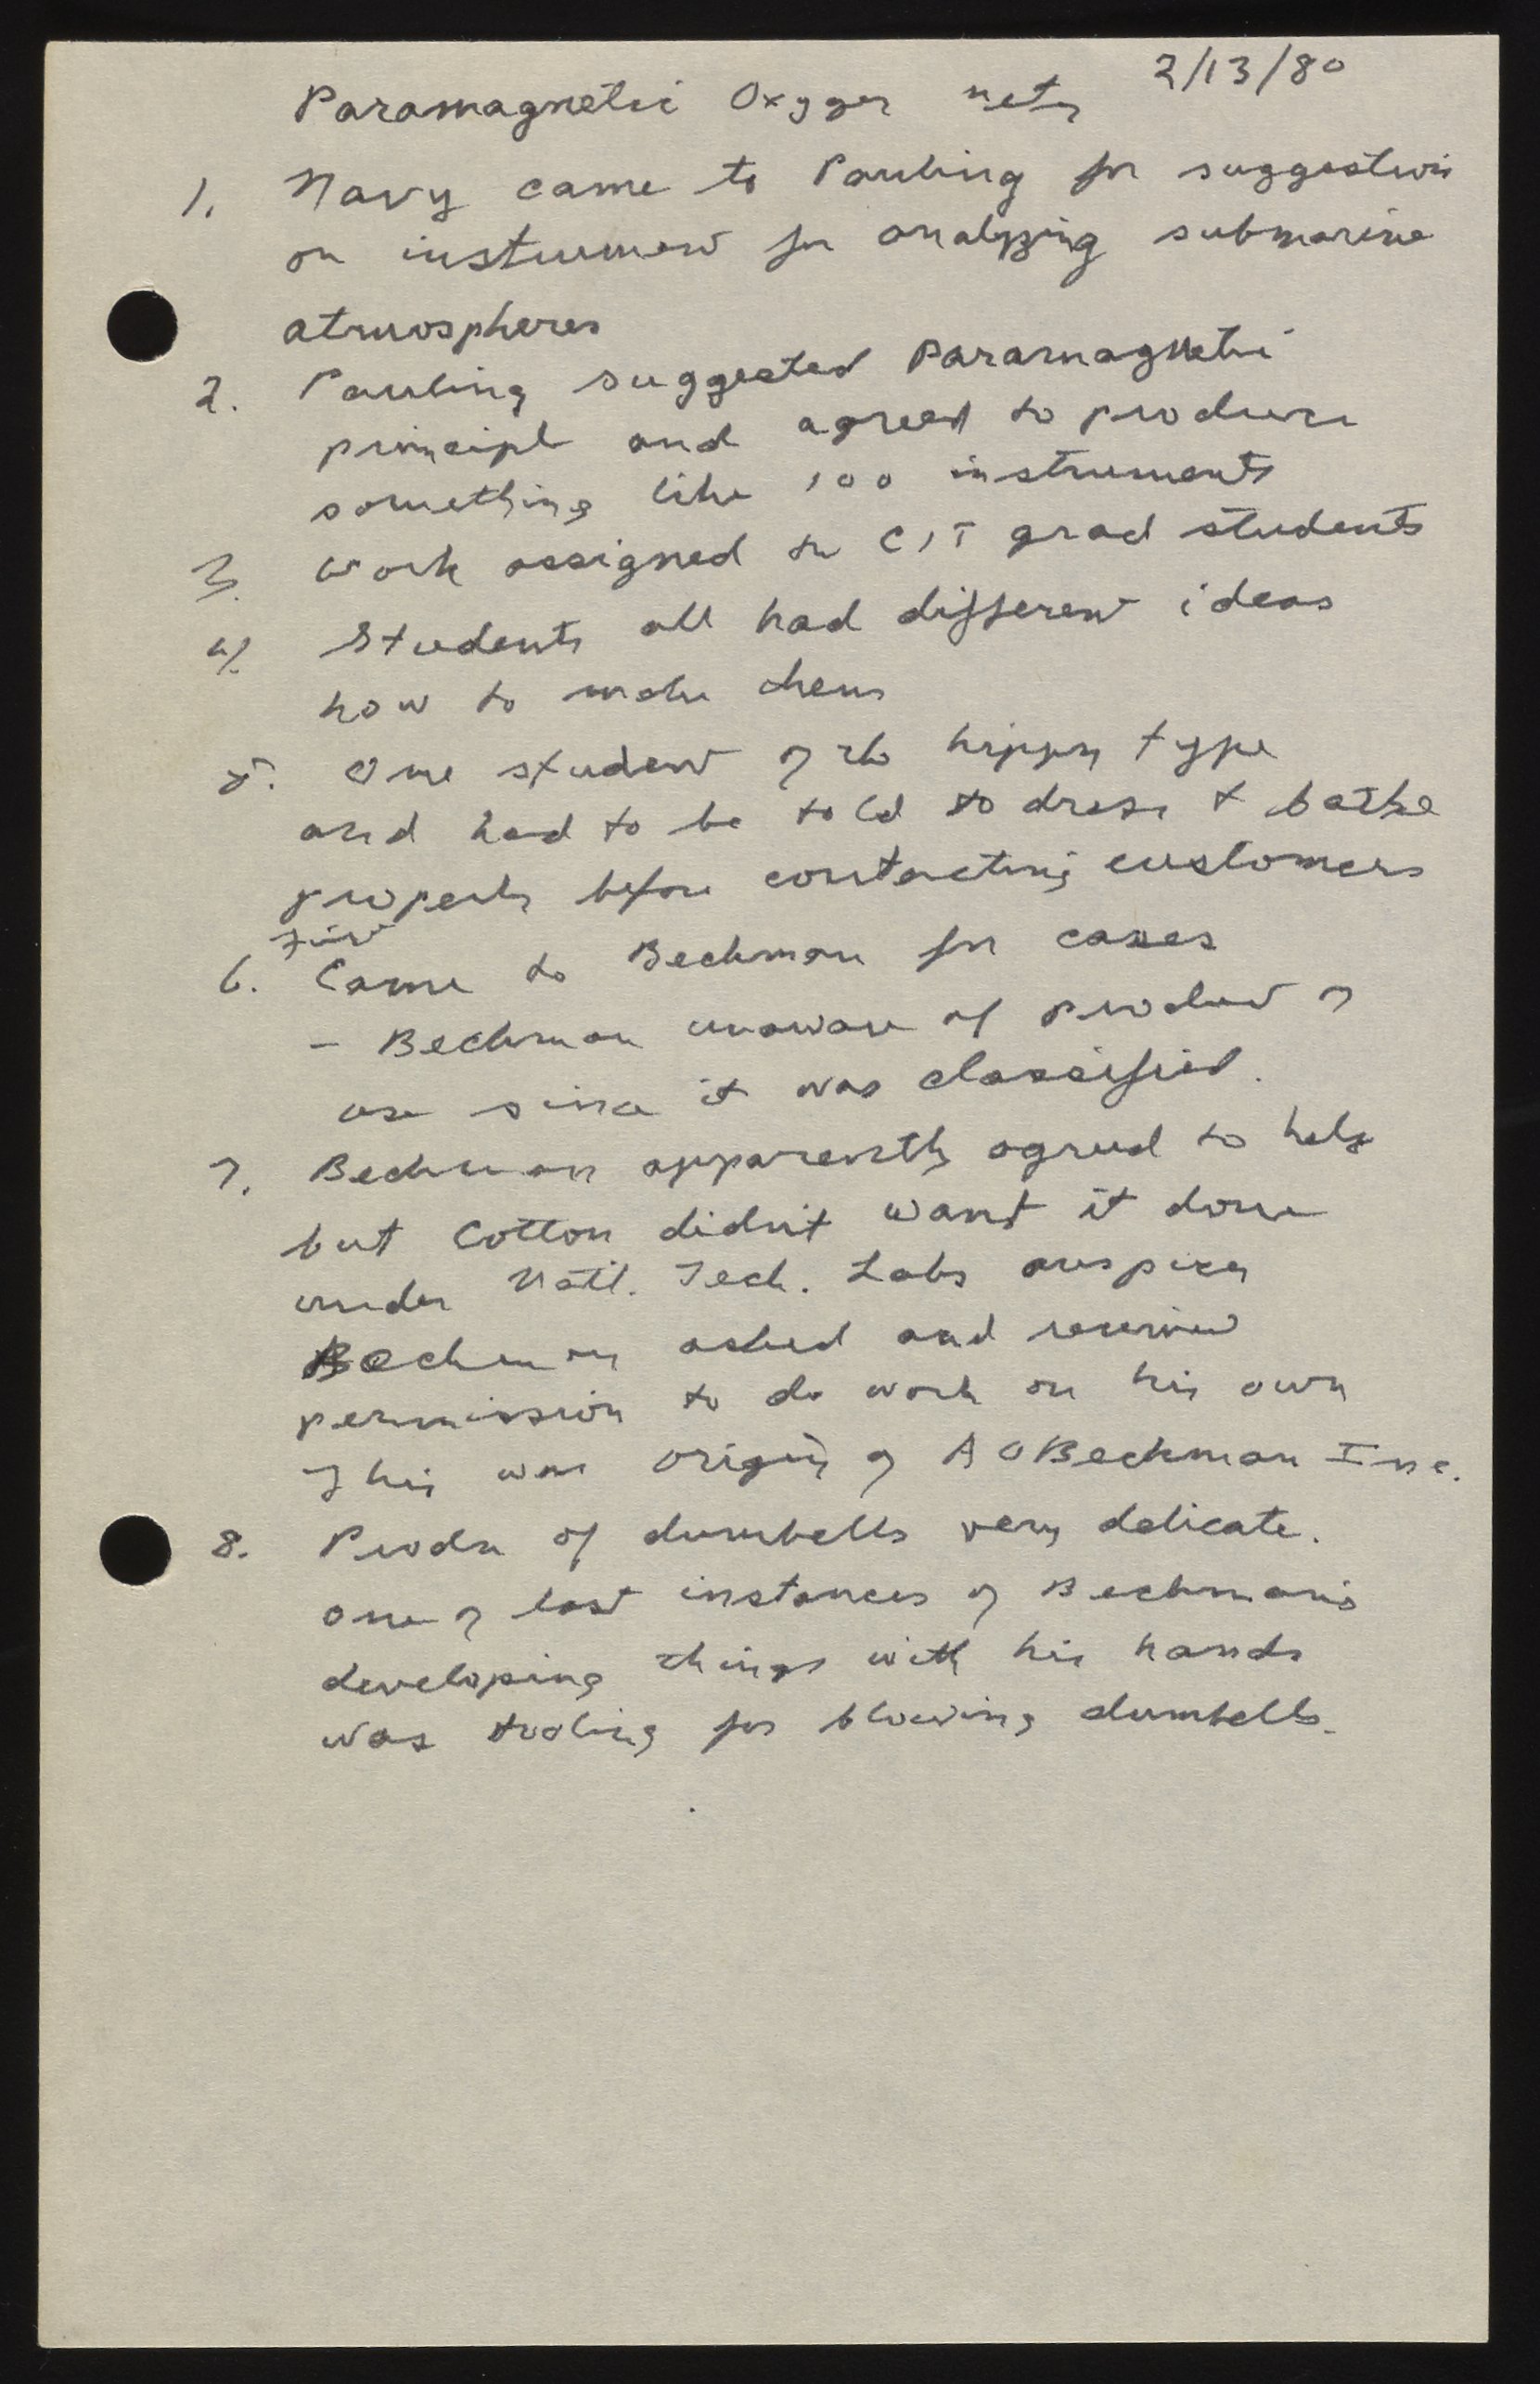 2/13/80
Paramagnetic Oxygen meter
1. Navy came to Pauling for suggestion
on instrument for analyzing submarine
atmospheres
2. Pauling suggested Paramagnetic
principle and agreed to produce
something like 100 instruments
3. Work assigned to CIT grad students
4. Students all had different ideas
how to make them
5. One student of the hippy type
and had to be told to dress & bathe
properly before contacting customers
First
6. Came to Beckman for cases
- Beckman unaware of product or
use since it was classified.
7. Beckman apparently agreed to help
but Cotton didn't want it done
under Natl. Tech. Labs auspices
Beckman asked and received
permission to do work on his own
This was origin of A O Beckman Inc.
8. Prodn of dumbells very delicate.
One of last instances of Beckman's
developing things with his hands
was tooling for blowing dumbells.